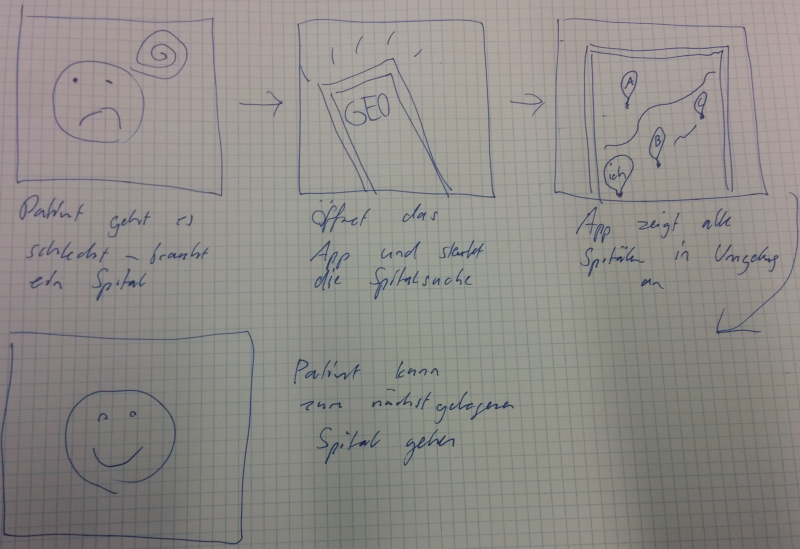 GEO
A
C
B
ich
Patient geht es
schlecht – braucht
ein Spital
Öffnet das
App und startet
die Spitalsuche
App zeigt alle
Spitäler in Umgebung
an
Patient kann
zum nächst gelegenen
Spital gehen